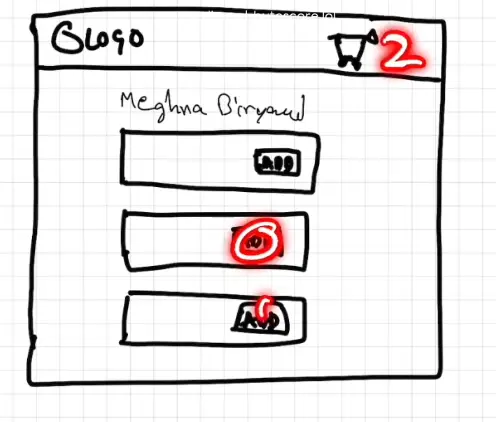 LOGO
2
Meghna Biryani
ADD
ADD